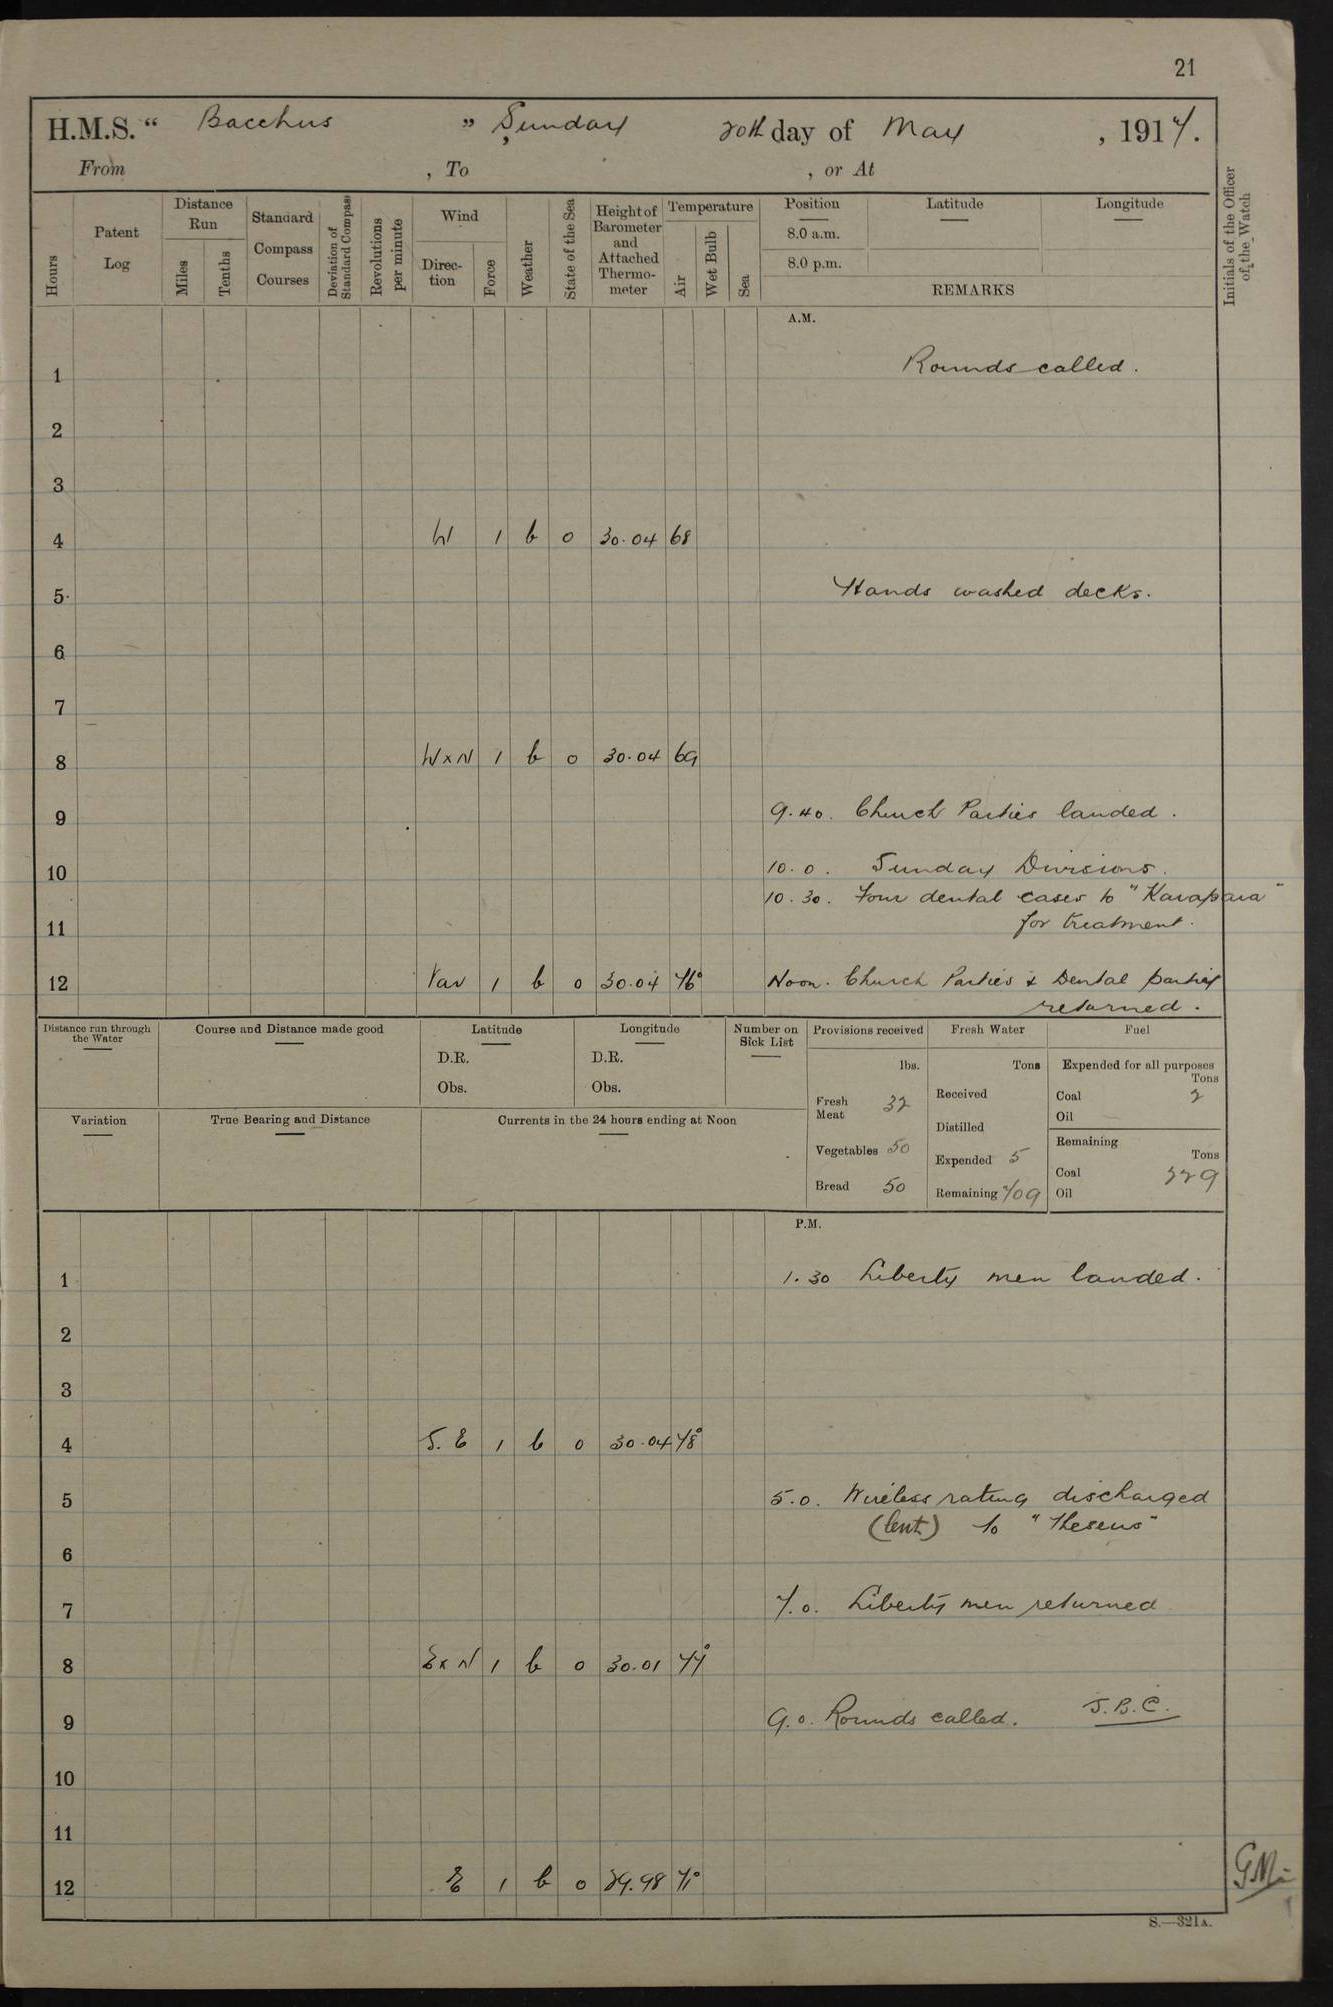 21
H.M.S. “ Bacchus ” , Sunday 20th day of May , 1917.
From , To , or At
Hours
Patent Log
Distance Run
Miles
Tenths
Standard Compass Courses
Deviation of Standard Compass
Revolutions per minute
Wind
Direc-tion
Force
Weather
State of the Sea
Height of Barometer and Attached Thermo-meter
Temperature
Air
Wet Bulb
Sea
Position
8.0 a.m.
8.0 p.m.
Latitude
Longitude
REMARKS
Initials of the Officer of the Watch
A.M.
1 Rounds called.
2
3
4 W 1 b 0 30.04 68
5 Hands washed decks.
6
7
8 W x N 1 b 0 30.04 69
9 9.40. Church Parties landed.
10 10.0. Sunday Divisions.
10.30. Four dental cases to "Karapara"
11 for treatment.
12 Var 1 b 0 30.04 76° Noon. Church Parties & Dental parties
returned.
Distance run through the Water
Course and Distance made good
Latitude
D.R.
Obs.
Longitude
D.R.
Obs.
Number on Sick List
Provisions received
lbs.
Fresh Meat 32
Vegetables 50
Bread 50
Fresh Water
Tons
Received
Distilled
Expended 5
Remaining 709
Fuel
Expended for all purposes
Tons
Coal 2
Oil
Remaining
Tons
Coal 329
Oil
Variation
True Bearing and Distance
Currents in the 24 hours ending at Noon
P.M.
1 1.30 Liberty men landed.
2
3
4 S.E 1 b 0 30.04 78°
5 5.0. Wireless rating discharged
(lent) to "Theseus"
6
7 7.0. Liberty men returned
8 E x N 1 b 0 30.01 77°
9 9.0. Rounds called. J.B.C.
10
11
12 E 1 b 0 29.98 71°
S.—321A.